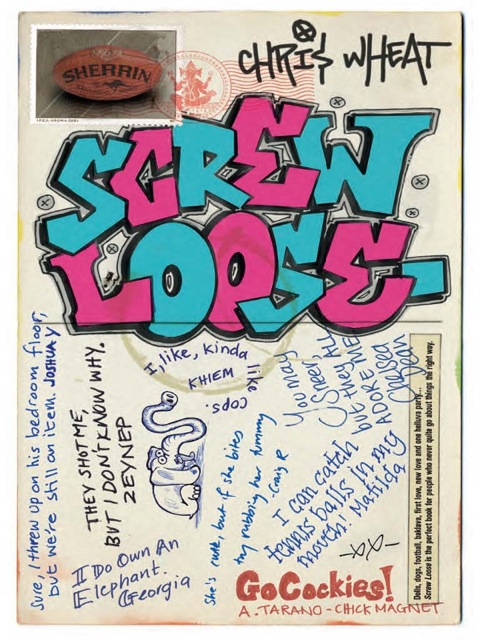 SHERRIN
CHRIS WHEAT
SCREW
LOOSE
Sure, I threw up on his bedroom floor,
but we're still an item. JOSHUA Y
THEY SHOT ME,
BUT I DON'T KNOW WHY.
ZEYNEP
I, like, kinda
like cops.
KHIEM
You may
sneer, ALL
but they
ADORE ME
Chelsea
Dean
She's cute, but if she bites
try rubbing her tummy
Craig R
I can catch
tennis balls in my
mouth! Matilda
I Do Own An
Elephant.
Georgia
-xx-
Go Cockies!
A. TARANO - CHICK MAGNET
Dolls, dogs, football, baklava, first love, new love and one helluva party...
Screw Loose is the perfect book for people who never quite go about things the right way.